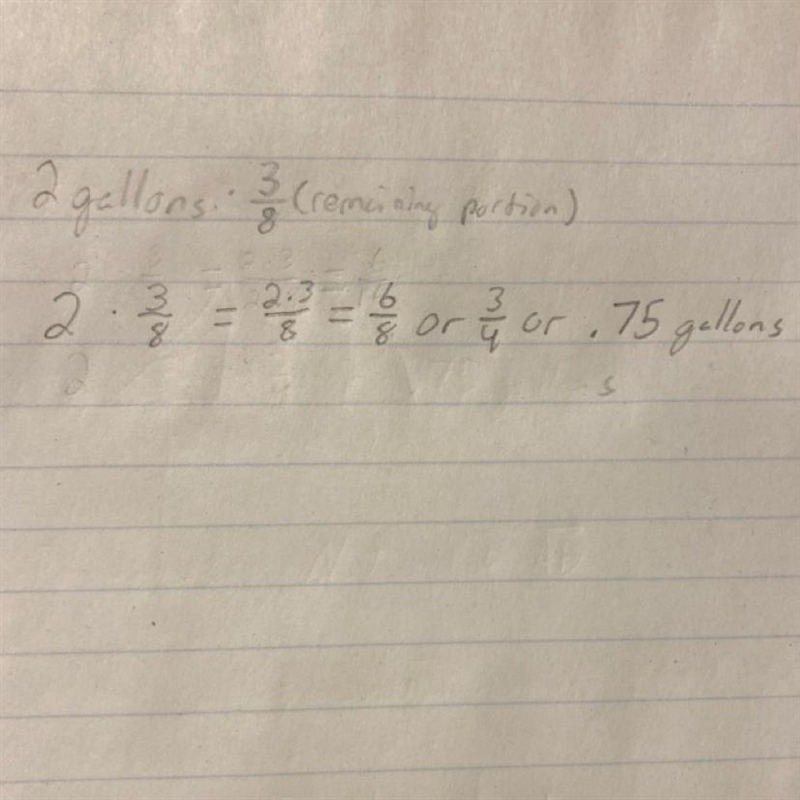 2 gallons · 3/8 (remaining portion)
2 · 3/8 = 2·3/8 = 6/8 or 3/4 or .75 gallons
s